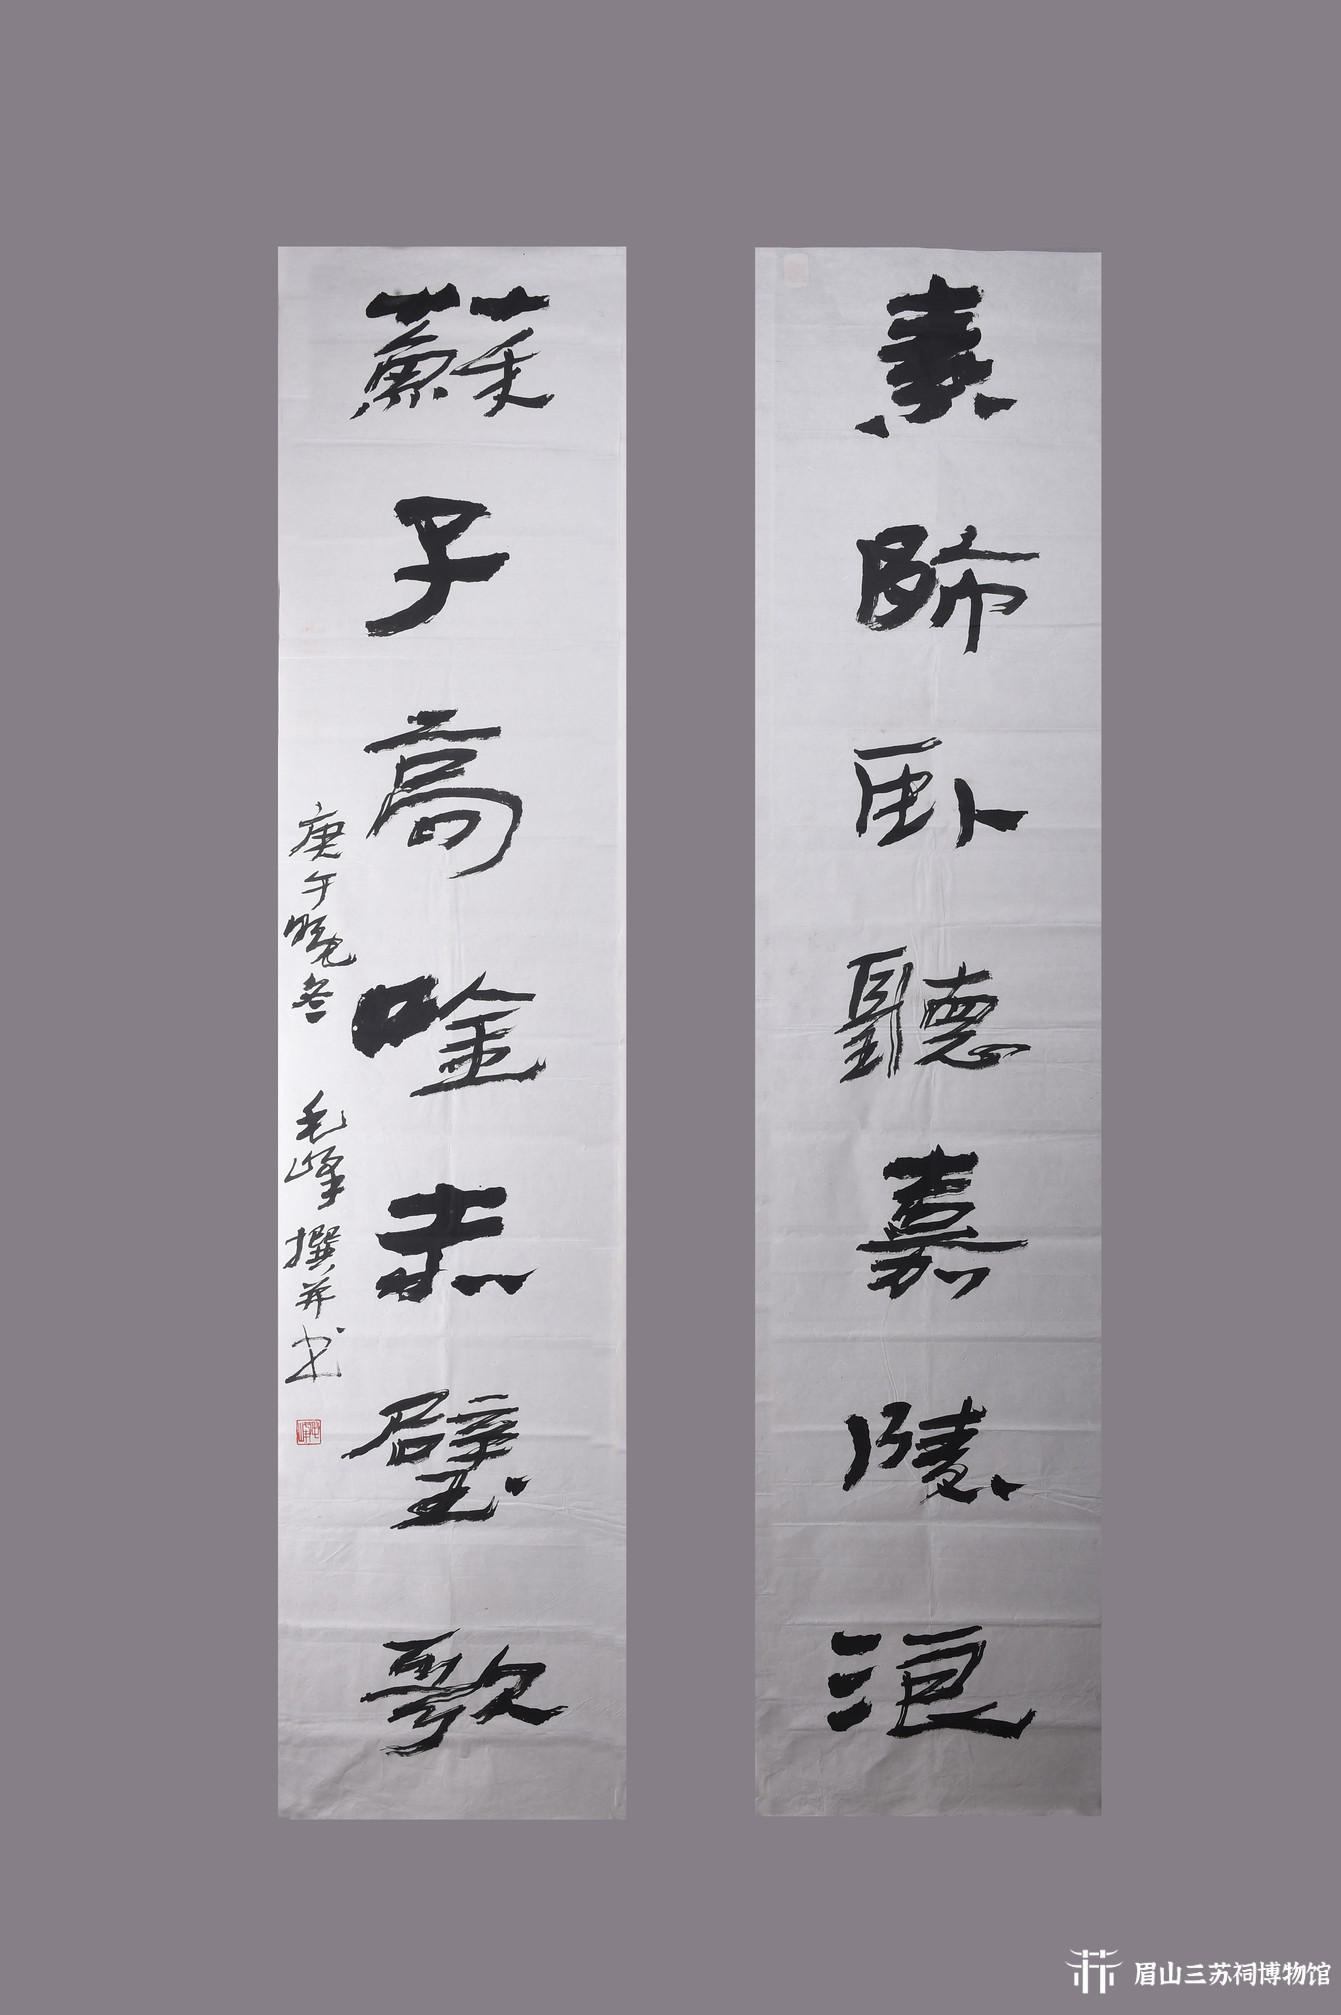 素師卧聽嘉陵浪
蘇子高唫赤壁歌
庚午晚冬 毛峰撰并书
眉山三苏祠博物馆